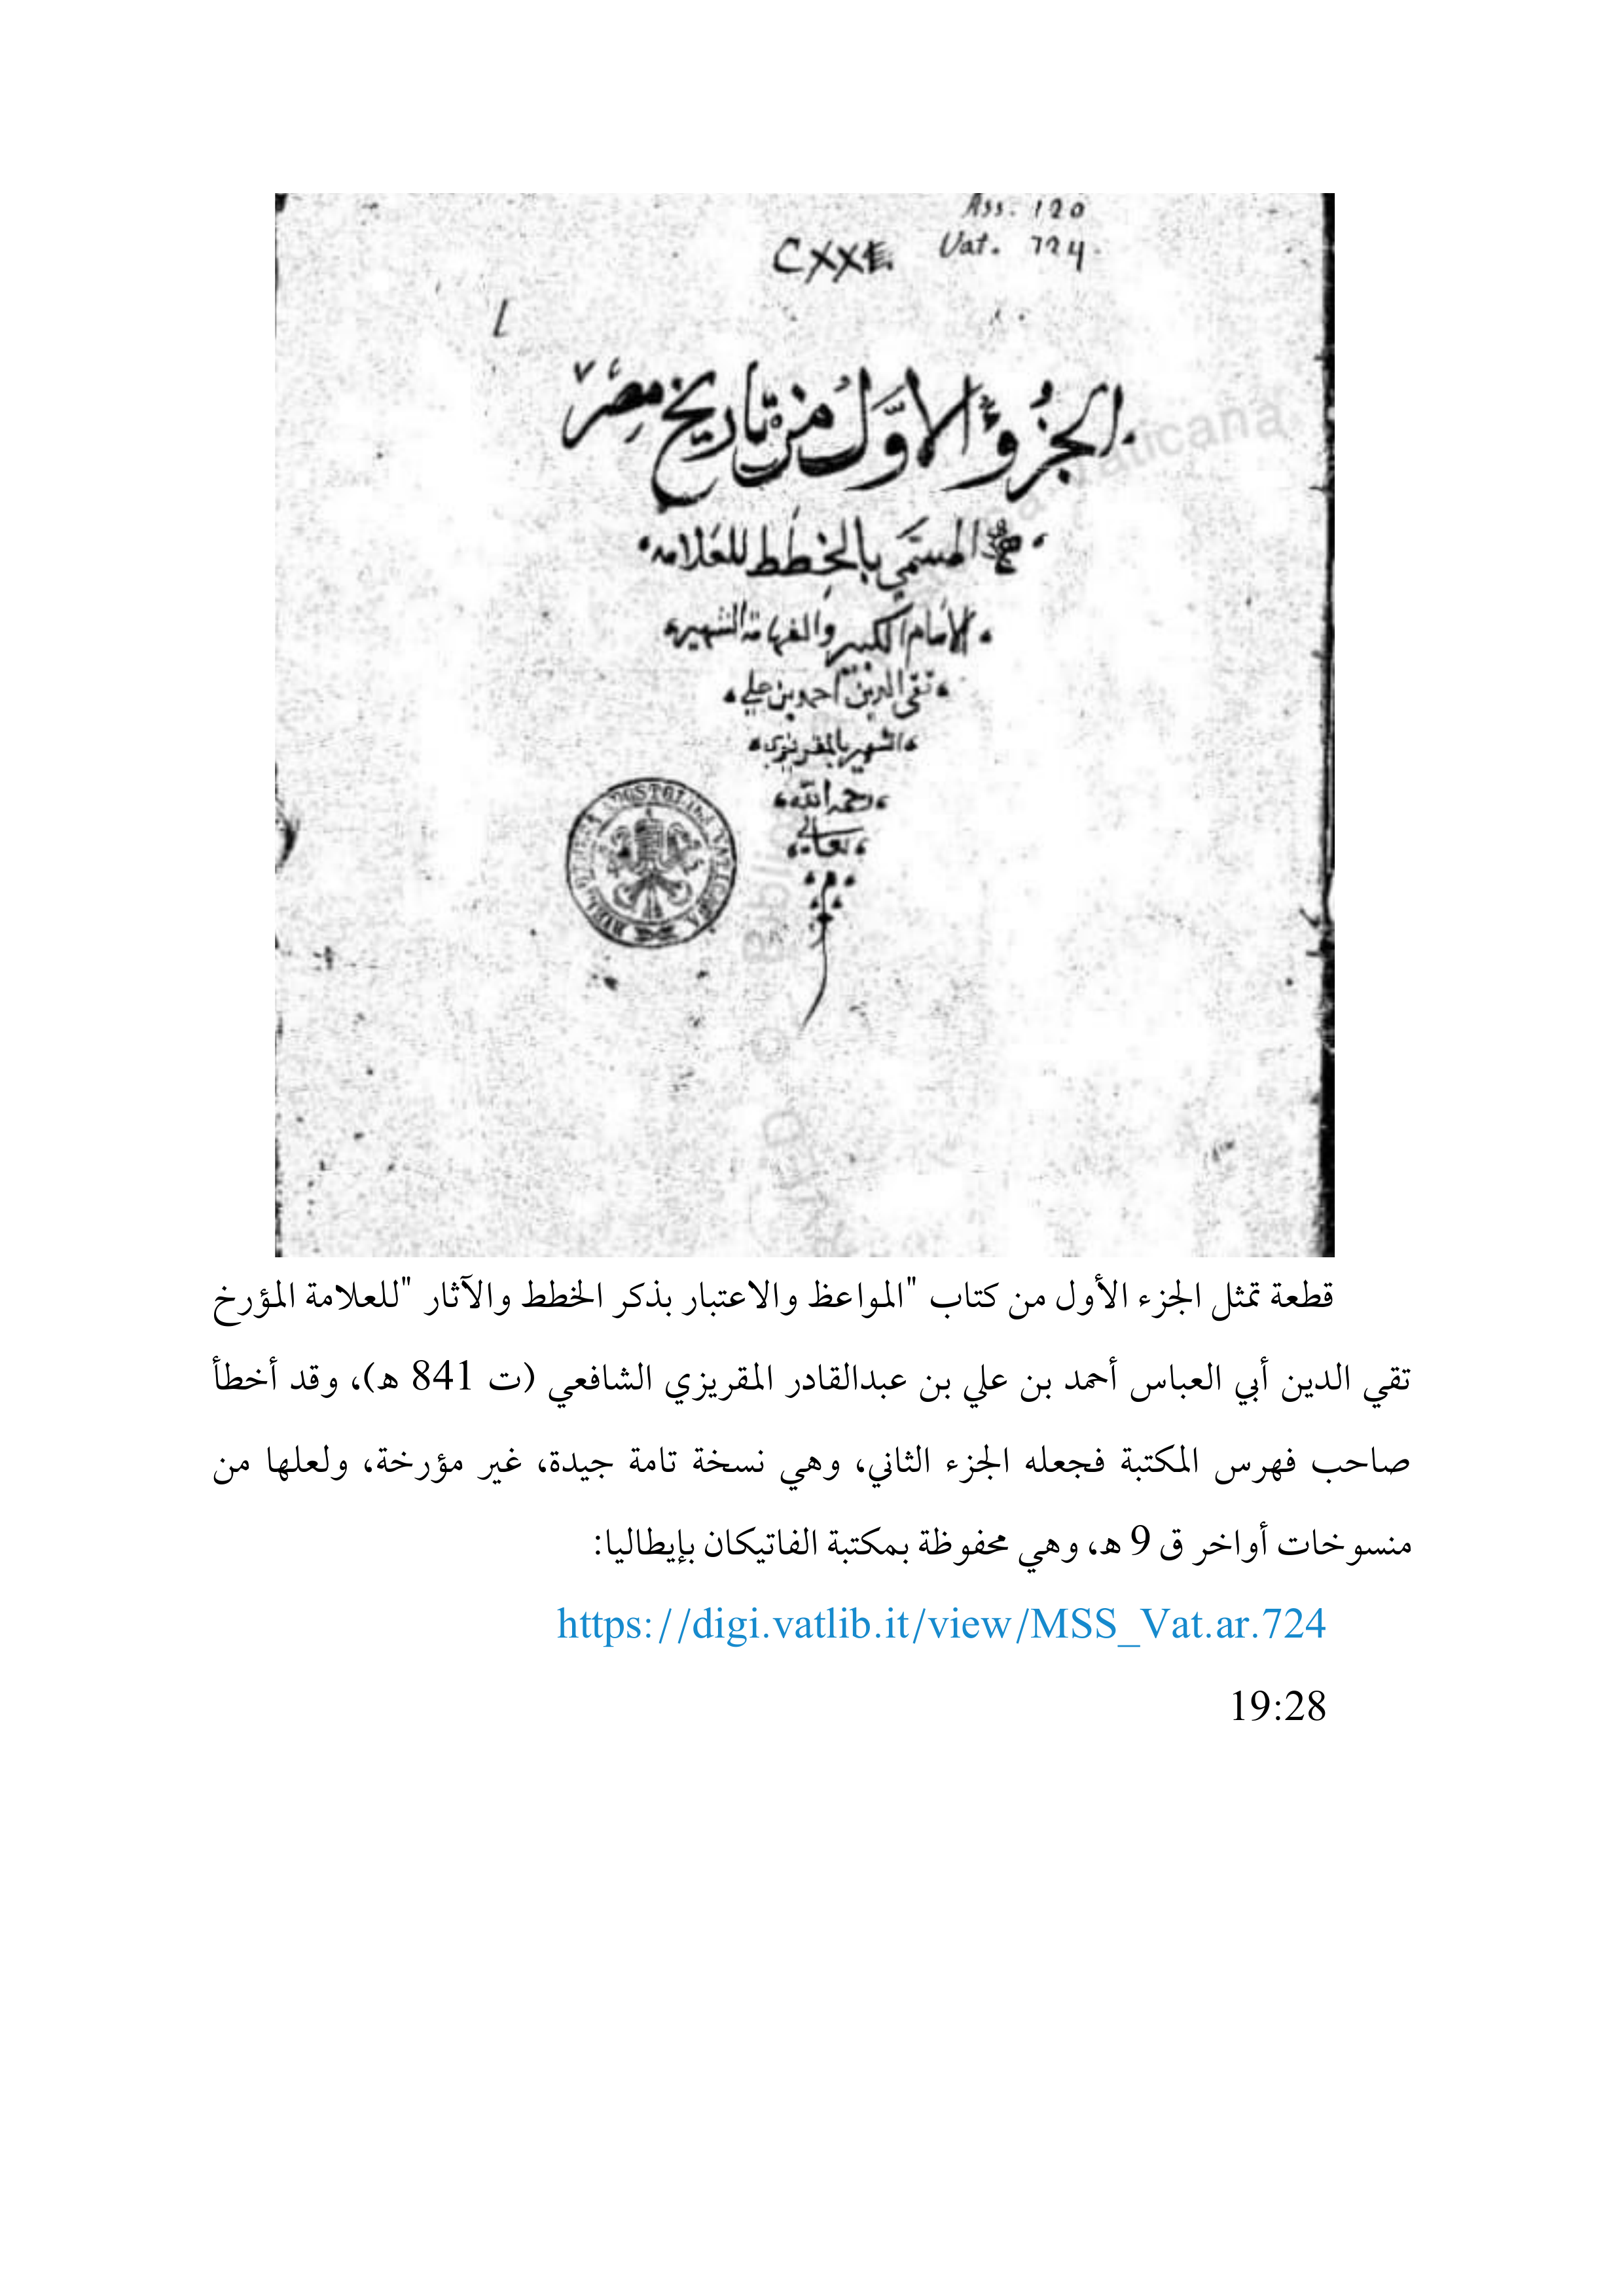 Ass. 120
Vat. 724.
CXXI.
الجزؤ الاول من تاريخ مصر
المسمى بالخطط للعلامه
الامام الكبير والفهامة الشهير
تقى الدين احمد بن على
الشهير بالمقريزى
رحمه الله
تعالى
م
قطعة تمثل الجزء الأول من كتاب "المواعظ والاعتبار بذكر الخطط والآثار "للعلامة المؤرخ
تقي الدين أبي العباس أحمد بن علي بن عبدالقادر المقريزي الشافعي (ت 841 ه)، وقد أخطأ
صاحب فهرس المكتبة فجعله الجزء الثاني، وهي نسخة تامة جيدة، غير مؤرخة، ولعلها من
منسوخات أواخر ق 9 ه، وهي محفوظة بمكتبة الفاتيكان بإيطاليا:
https://digi.vatlib.it/view/MSS_Vat.ar.724
19:28